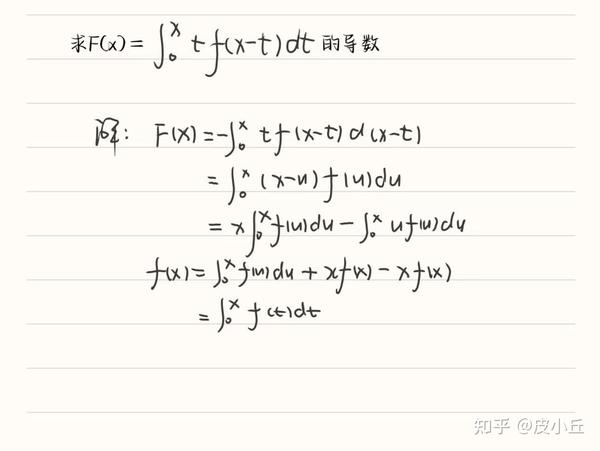 求F(x)=∫₀ˣ t f(x-t)dt 的导数
解: F(x)=-∫₀ˣ t f(x-t) d(x-t)
=∫₀ˣ (x-u) f(u)du
= x∫₀ˣ f(u)du - ∫₀ˣ u f(u)du
f(x)=∫₀ˣ f(u)du + x f(x) - x f(x)
= ∫₀ˣ f(t)dt
知乎 @皮小丘